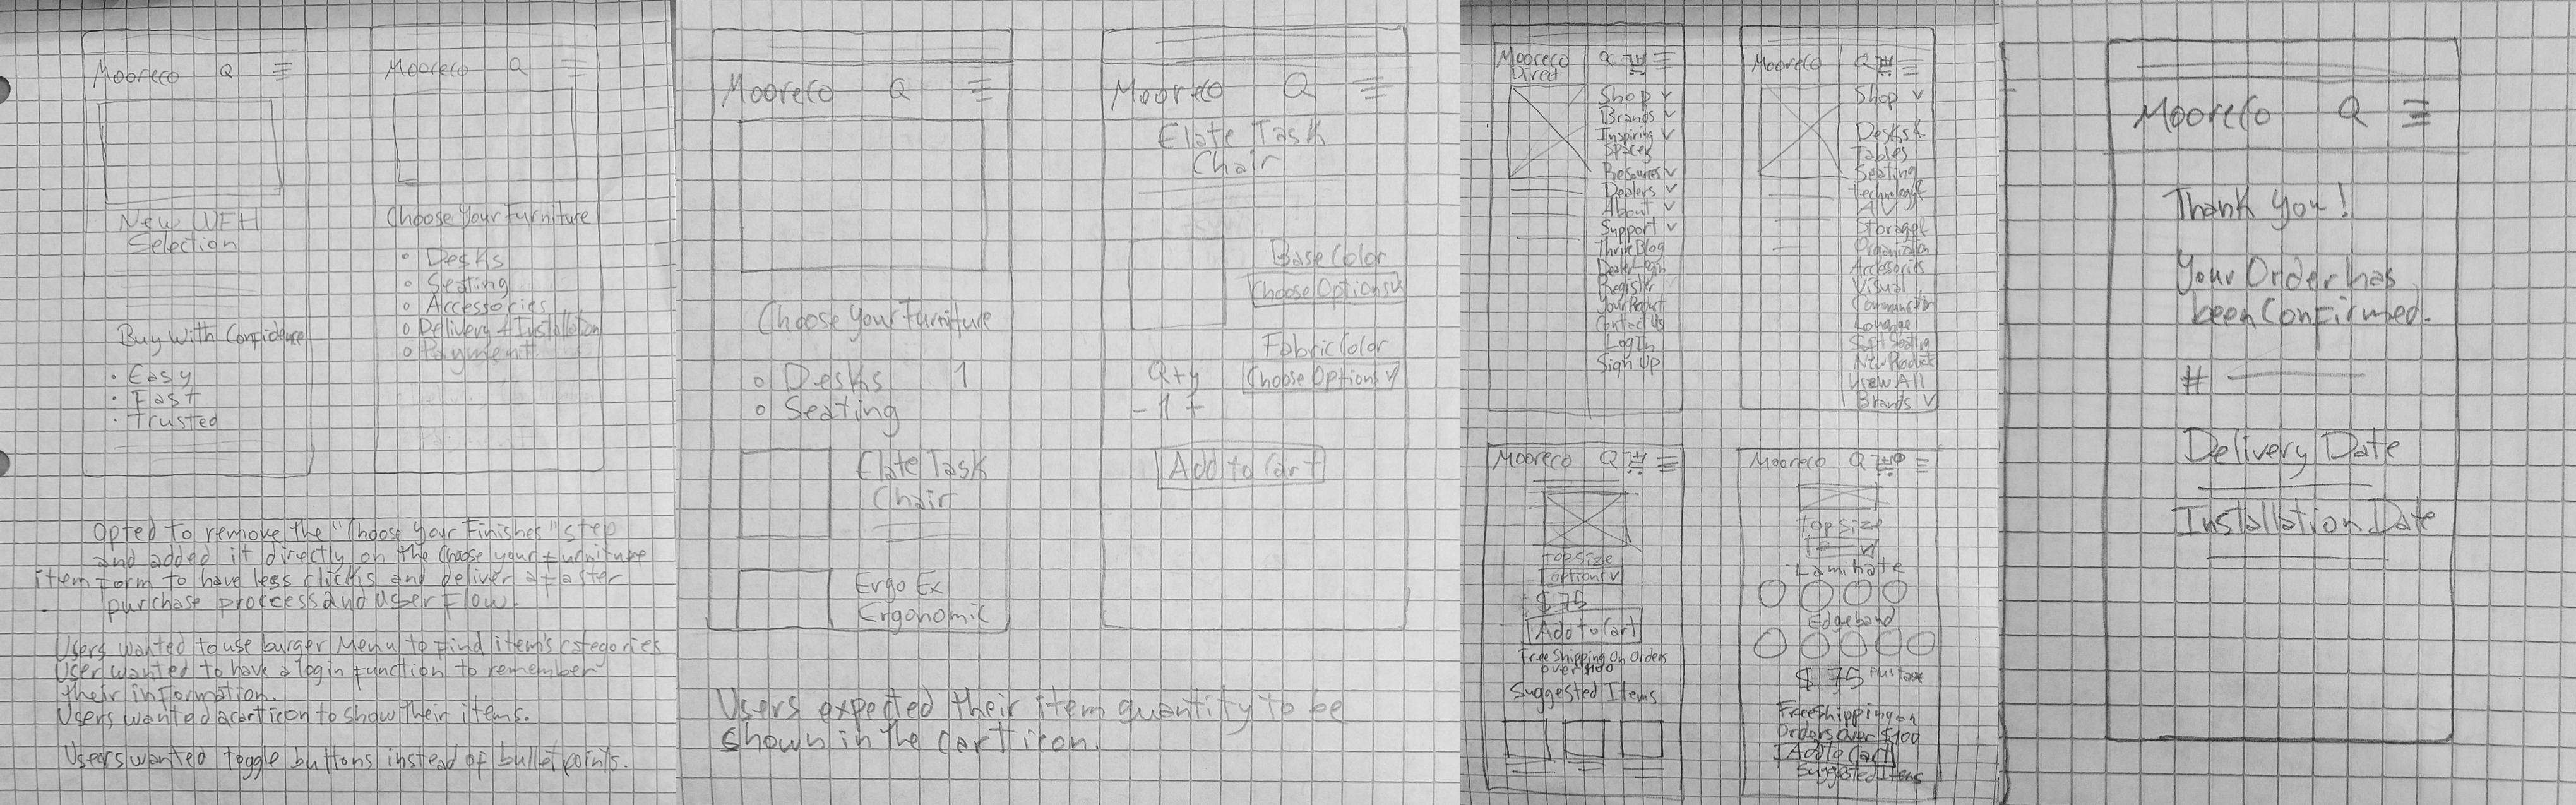 MooreCo Q
New WFH
Selection
Buy With Confidence
• Easy
• Fast
• Trusted
MooreCo Q
Choose Your Furniture
○ Desks
○ Seating
○ Accessories
○ Delivery + Installation
○ Payment
Opted to remove the "Choose Your Finishes" step
and added it directly on the Choose your furniture
item form to have less clicks and deliver a faster
purchase proccess and User Flow.
Users wanted to use burger Menu to find item's categories
User wanted to have a login function to remember
their information.
Users wanted a cart icon to show their items.
Users wanted toggle buttons instead of bullet points.
MooreCo Q
Choose Your Furniture
○ Desks 1
○ Seating
Elate Task
Chair
Ergo Ex
Ergonomic
MooreCo Q
Elate Task
Chair
Base Color
Choose Options v
Fabric Color
Qty Choose Options v
- 1 +
Add to Cart
Users expected their item quantity to be
shown in the cart icon.
MooreCo Q
Direct
Shop v
Brands v
Inspiring v
Spaces
Resources v
Dealers v
About v
Support v
Thrive Blog
Dealer
Register
Your Product
Contact Us
Log In
Sign Up
MooreCo Q
Shop v
Desks &
Tables
Seating
Technology &
AV
Storage &
Organization
Accessories
Visual
Communication
Lounge
Soft Seating
New Products
View All
Brands v
MooreCo Q
Top Size
Options v
$75
Add to Cart
Free Shipping On Orders
over $100
Suggested Items
MooreCo Q
Top Size
Laminate
Edgeband
$75 Plus tax
Free Shipping on
Orders over $100
Add to Cart
Suggested Items
MooreCo Q
Thank You!
Your Order has
been Confirmed.
#
Delivery Date
Installation Date